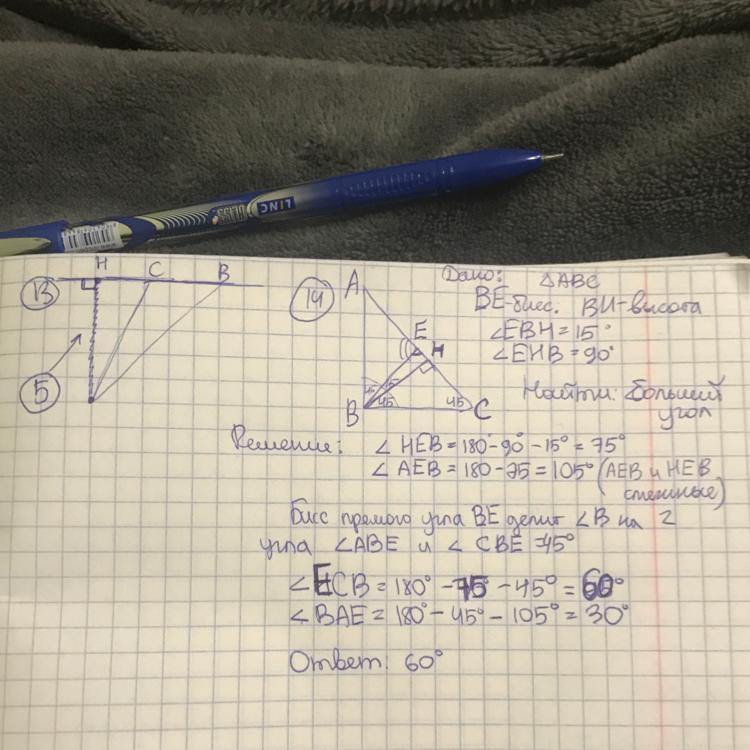 LINC
GLASS
H
C
B
13
5
14
A
E
H
B
C
45
45
Дано: △ABC
BE-бис. BH-высота
∠EBH=15°
∠EHB=90°
Найти: больший
угол
Решение: ∠HEB=180°-90°-15°=75°
∠AEB=180-75=105° (AEB и HEB
смежные)
Бисс прямого угла BE делит ∠B на 2
угла ∠ABE и ∠CBE=45°
∠ECB=180°-75°-45°=60°
∠BAE=180°-45°-105°=30°
Ответ: 60°